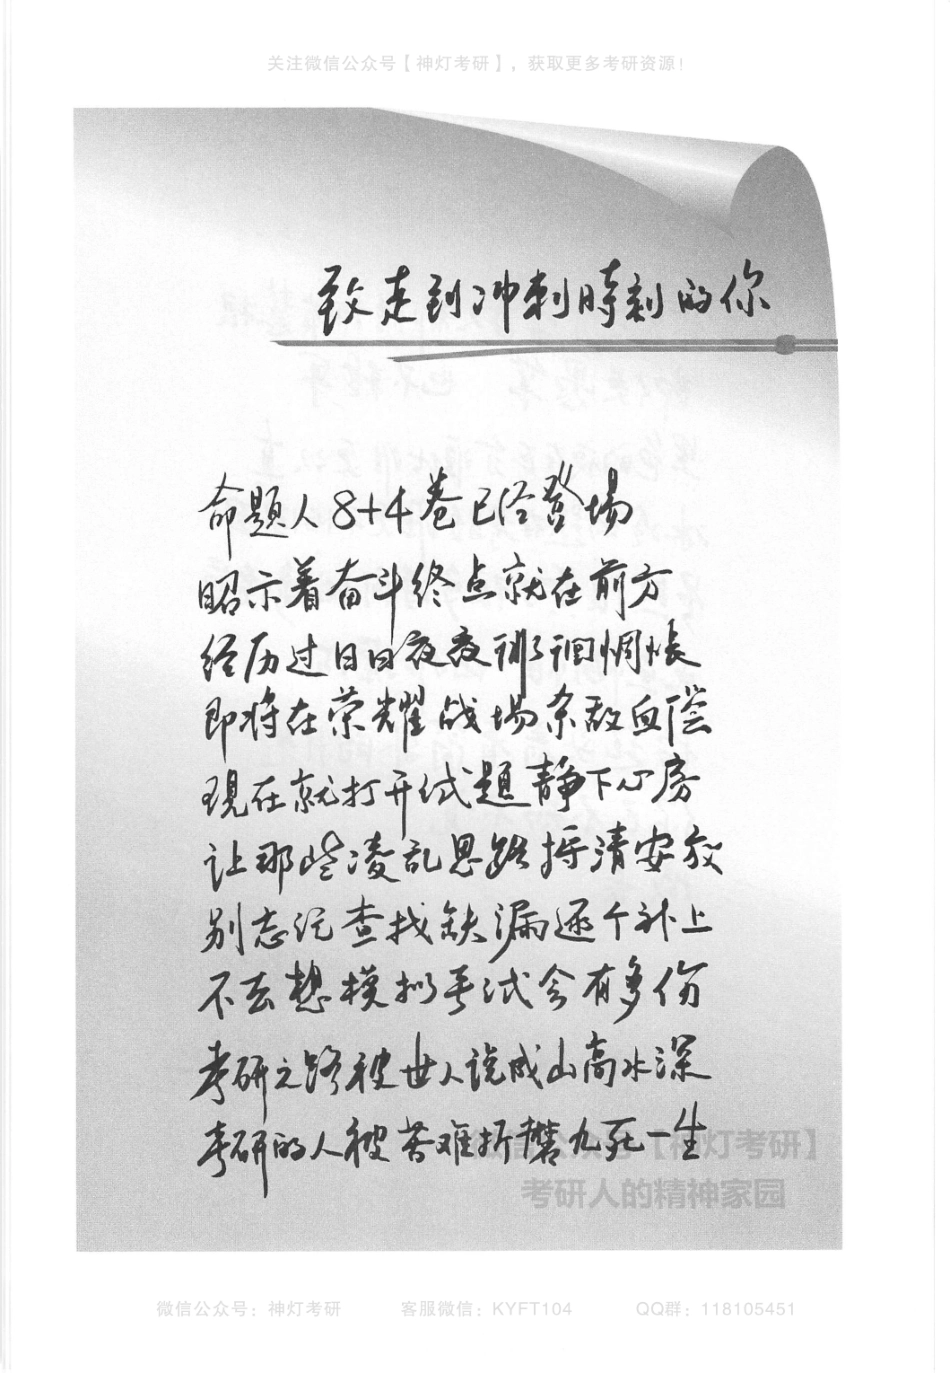 关注微信公众号【神灯考研】，获取更多考研资源！
致走到冲刺時刻的你
命题人8+4卷已经登場
昭示着奋斗终点就在前方
经历过日日夜夜徘徊惆怅
即将在荣耀战場杀敌血偿
現在就打开试題静下心房
让那些凌乱思路捋清安放
别忘记查找缺漏逐个补上
不去想模拟考试会有多伤
考研之路被世人说成山高水深
考研的人被苦难折磨九死一生
【神灯考研】
考研人的精神家园
微信公众号：神灯考研 客服微信：KYFT104 QQ群：118105451